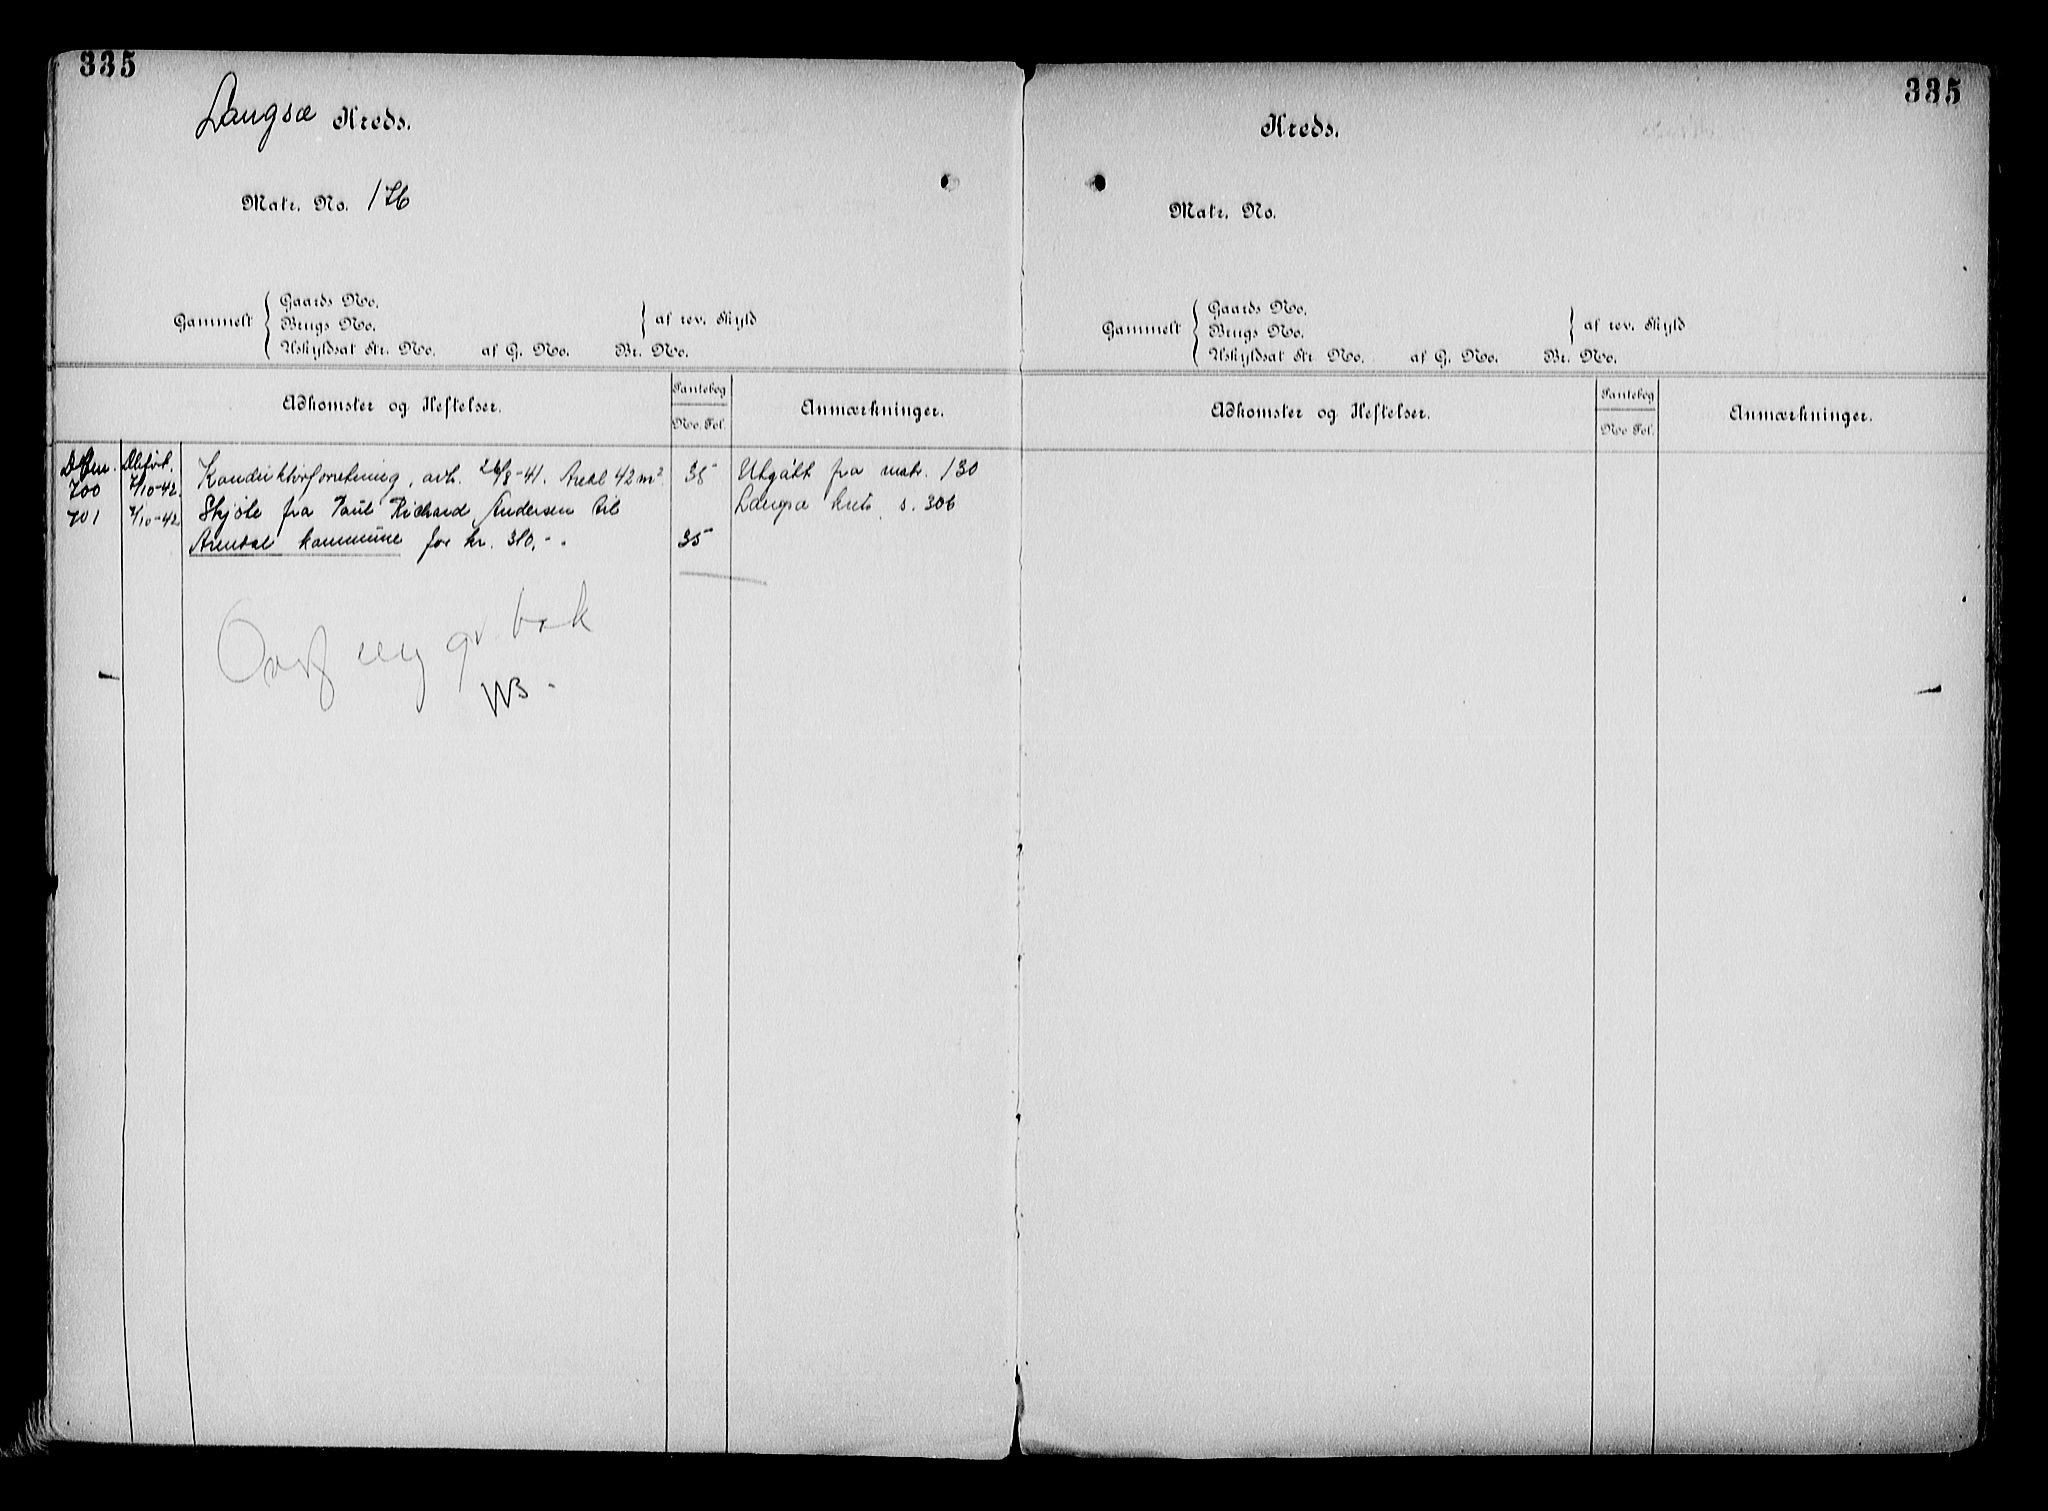 335
Langsæ Kreds.
Matr. No. 176
Gammelt { Gaards No.
Brugs No. } af rev. Skyld
Uskyldsat Str. No. af G. No. Br. No.
Adkomster og Heftelser.
Pantebog
No. Fol.
Anmærkninger.
Dbført.
700 7/10-42. Konduktørforretning, avh. 26/8-41. Areal 42 m². 35 Utgått fra matr. 130
701 7/10-42. Skjøte fra Paul Richard Andersen til Langsæ krets s. 306
Arendal kommune for kr. 310,-. 35
Overf ny gr. bok
WB-
335
Kreds.
Matr. No.
Gammelt { Gaards No.
Brugs No. } af rev. Skyld
Uskyldsat Str. No. af G. No. Br. No.
Adkomster og Heftelser.
Pantebog
No Fol.
Anmærkninger.